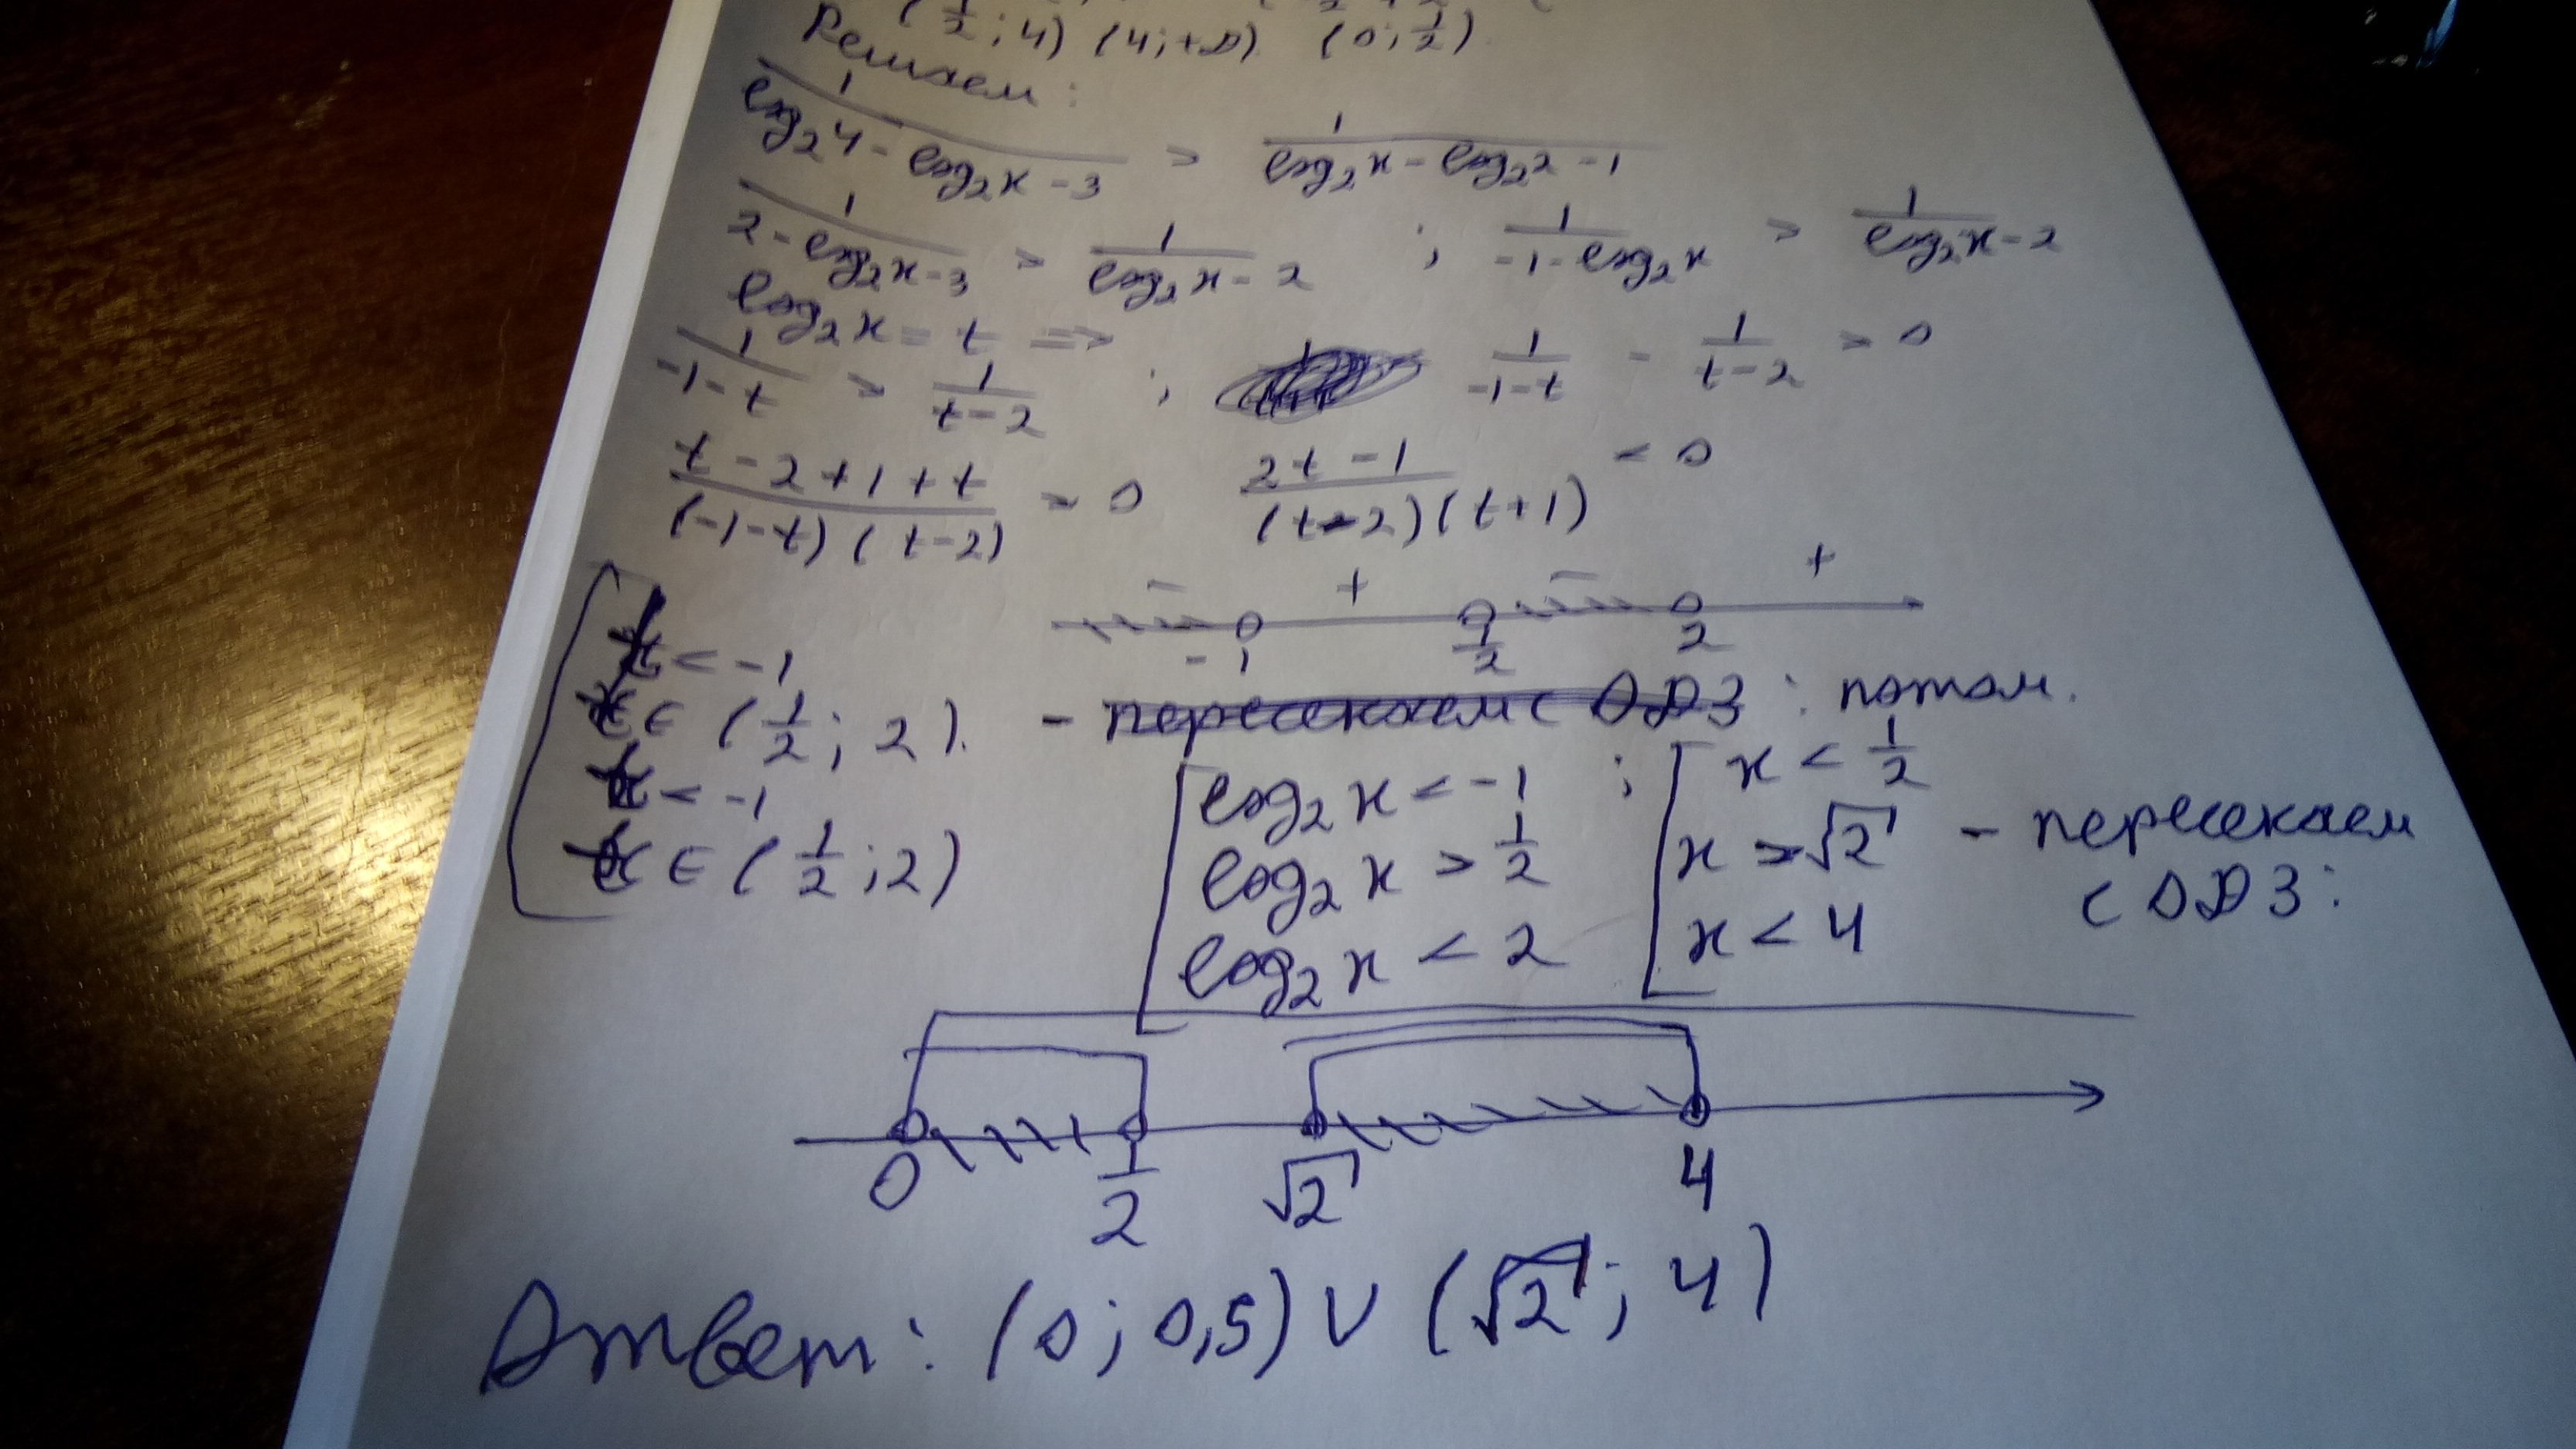 (1/2; 4) (4; +∞) (0; 1/2)
Решаем:
1/(log₂4 - log₂x - 3) > 1/(log₂x - log₂2 - 1)
1/(2 - log₂x - 3) > 1/(log₂x - 2) ; 1/(-1 - log₂x) > 1/(log₂x - 2)
log₂x = t =>
1/(-1-t) > 1/(t-2) ; 1/(-1-t) - 1/(t-2) > 0
(t-2+1+t)/((-1-t)(t-2)) > 0 (2t-1)/((t-2)(t+1)) < 0
- + - +
-1 1/2 2
t < -1
t ∈ (1/2; 2). - пересекаем с ОДЗ: потом.
t < -1
t ∈ (1/2; 2)
[ log₂x < -1 ; [ x < 1/2
log₂x > 1/2 x > √2 - пересекаем
log₂x < 2 x < 4 с ОДЗ:
0 1/2 √2 4
Ответ: (0; 0,5) ∪ (√2; 4)